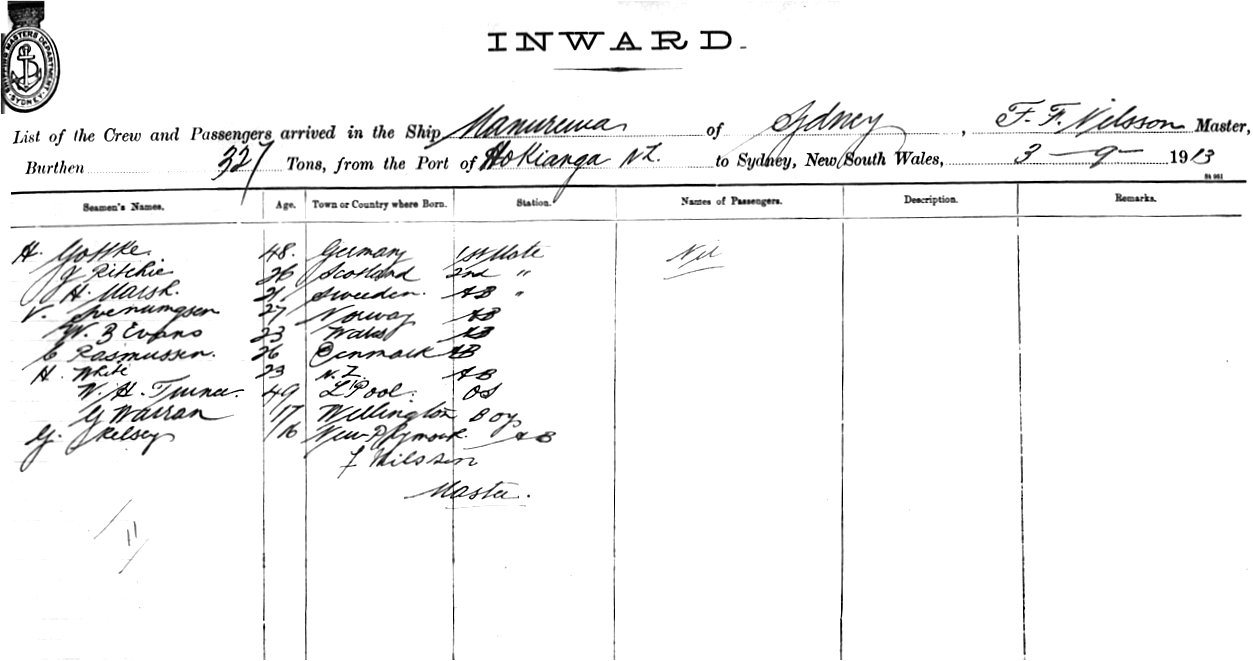 SHIPPING MASTERS DEPARTMENT SYDNEY
INWARD.
List of the Crew and Passengers arrived in the Ship Manurewa of Sydney, F. F. Nilsson Master,
Burthen 327 Tons, from the Port of Hokianga NZ. to Sydney, New South Wales, 3 - 9 - 1913
Seamen's Names. Age. Town or Country where Born. Station. Names of Passengers. Description. Remarks.
H. 48. Germany 1st Mate Nil
J Ritchie 26 Scotland 2nd "
H. Marsh. 21 Sweden. AB "
V. 27 Norway AB
W. B Evans 23 Wales AB
E Rasmussen. 26 Denmark AB
H. White 23 N.Z. AB
W. H. Turner. 49 L'Pool. OS
G Warran 17 Wellington Boy
G. Kelsey 16 New Plymouth. AB
F Nilsson
Master.
11